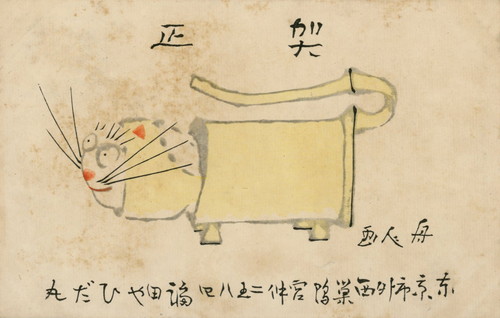 賀正
舟人画
東京市外西巣鴨宮仲二五八四 田やひだ丸